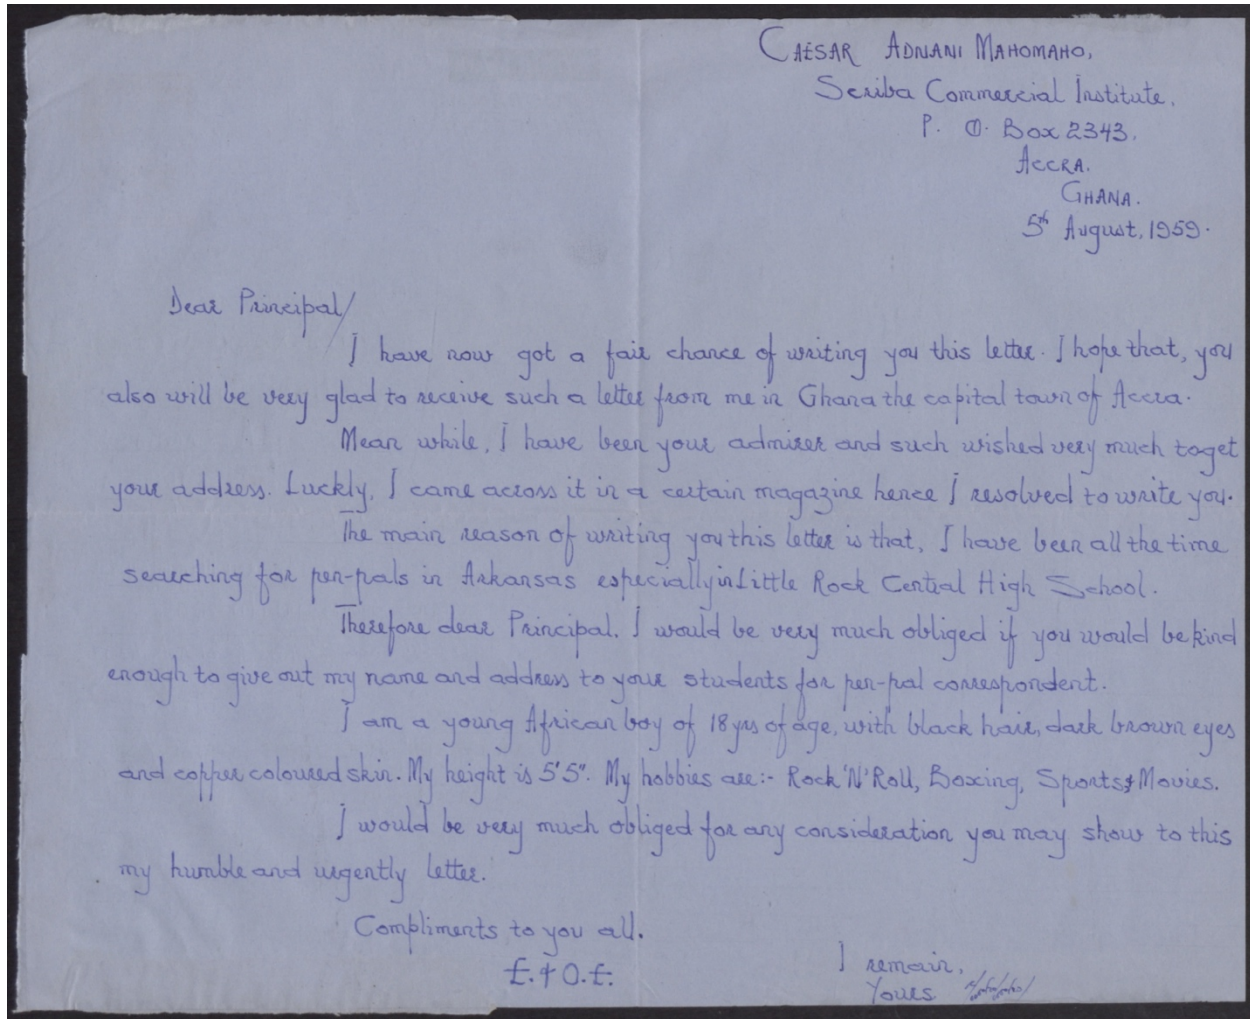 CAESAR ADNANI MAHOMAHO,
Scriba Commercial Institute.
P. O. Box 2343.
ACCRA.
GHANA.
5th August, 1959.
Dear Principal/
I have now got a fair chance of writing you this letter. I hope that, you
also will be very glad to receive such a letter from me in Ghana the capital town of Accra.
Mean while, I have been your admirer and such wished very much to get
your address. Luckly, I came across it in a certain magazine hence I resolved to write you.
The main reason of writing you this letter is that, I have been all the time
searching for pen-pals in Arkansas especially in Little Rock Central High School.
Therefore dear Principal, I would be very much obliged if you would be kind
enough to give out my name and address to your students for pen-pal correspondent.
I am a young African boy of 18 yrs of age, with black hair, dark brown eyes
and copper coloured skin. My height is 5'5". My hobbies are:- Rock 'N' Roll, Boxing, Sports & Movies.
I would be very much obliged for any consideration you may show to this
my humble and urgently letter.
Compliments to you all.
E. & O. E.
I remain,
Yours